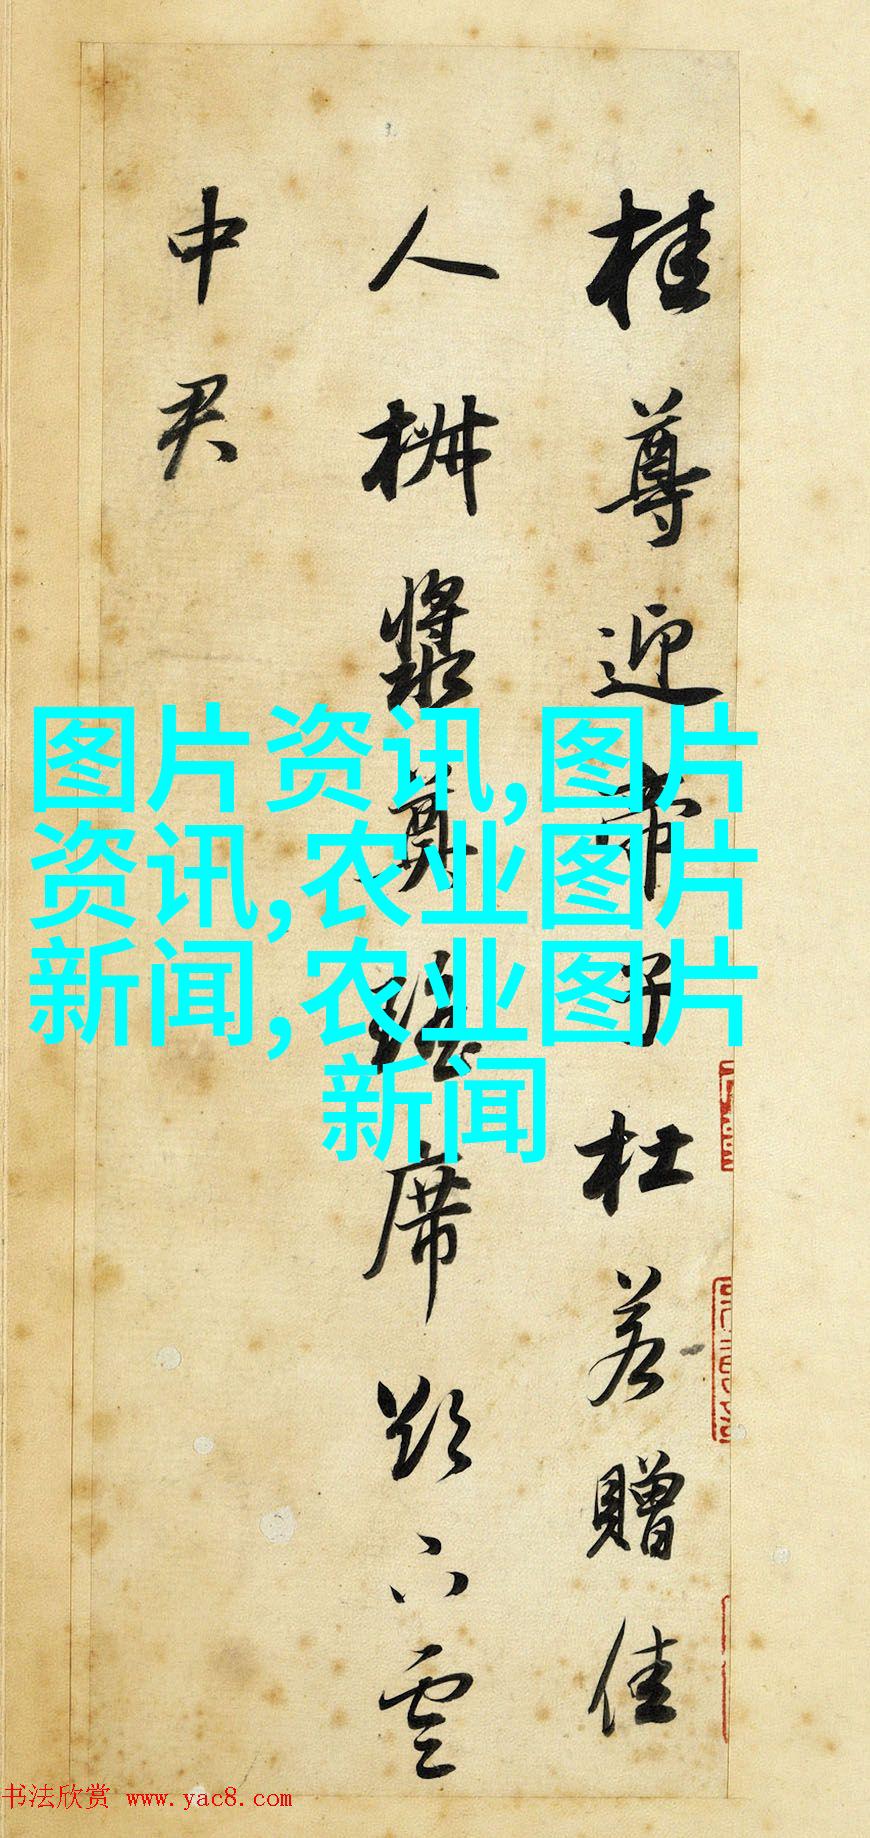 桂尊迎帝子杜若贈佳
人椒漿奠瑤席欲下雲
中君
图片资讯,图片
资讯,农业图片
新闻,农业图片
新闻
书法欣赏 www.yac8.com